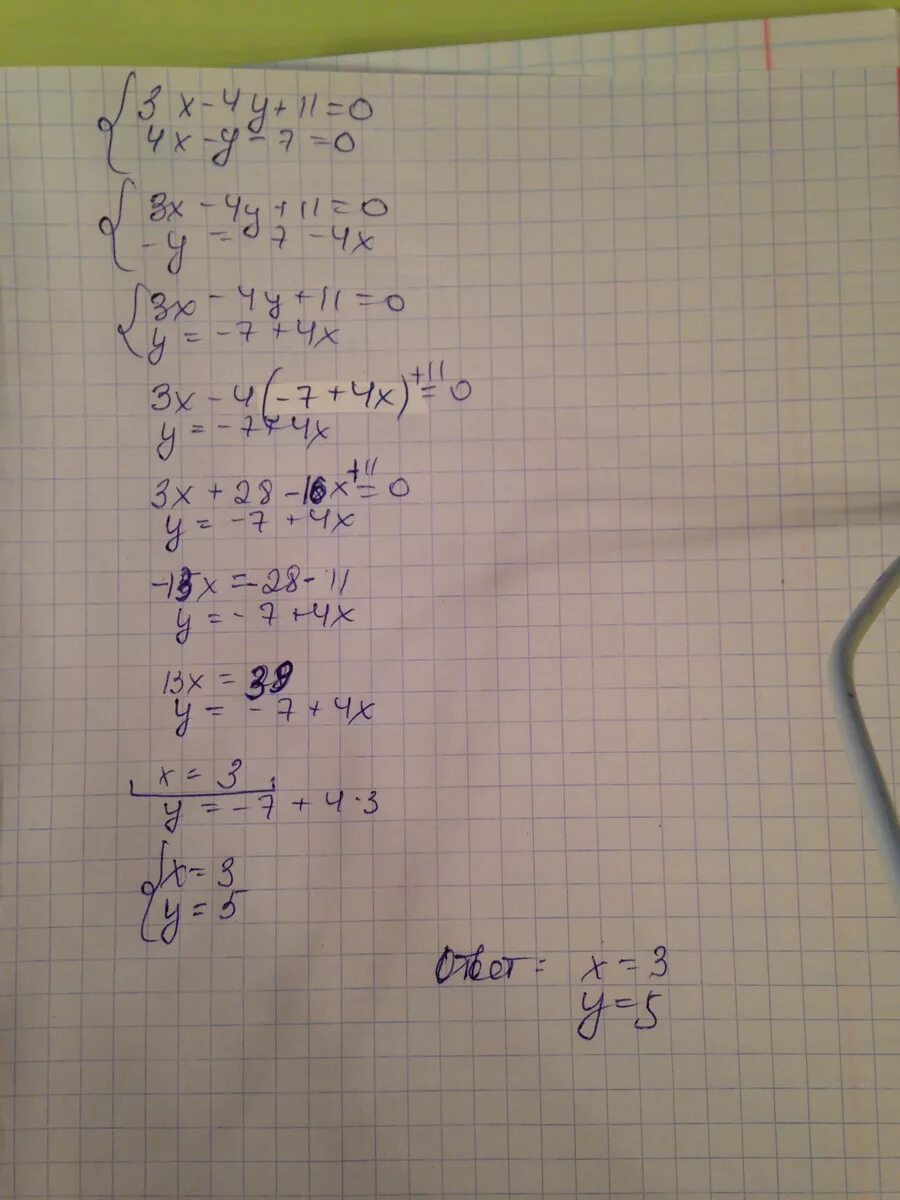 3x-4y+11=0
4x-y-7=0
3x-4y+11=0
-y=7-4x
3x-4y+11=0
y=-7+4x
3x-4(-7+4x)+11=0
y=-7+4x
3x+28-16x+11=0
y=-7+4x
-13x=-28-11
y=-7+4x
13x=39
y=-7+4x
x=3
y=-7+4·3
x=3
y=5
Ответ= x=3
y=5